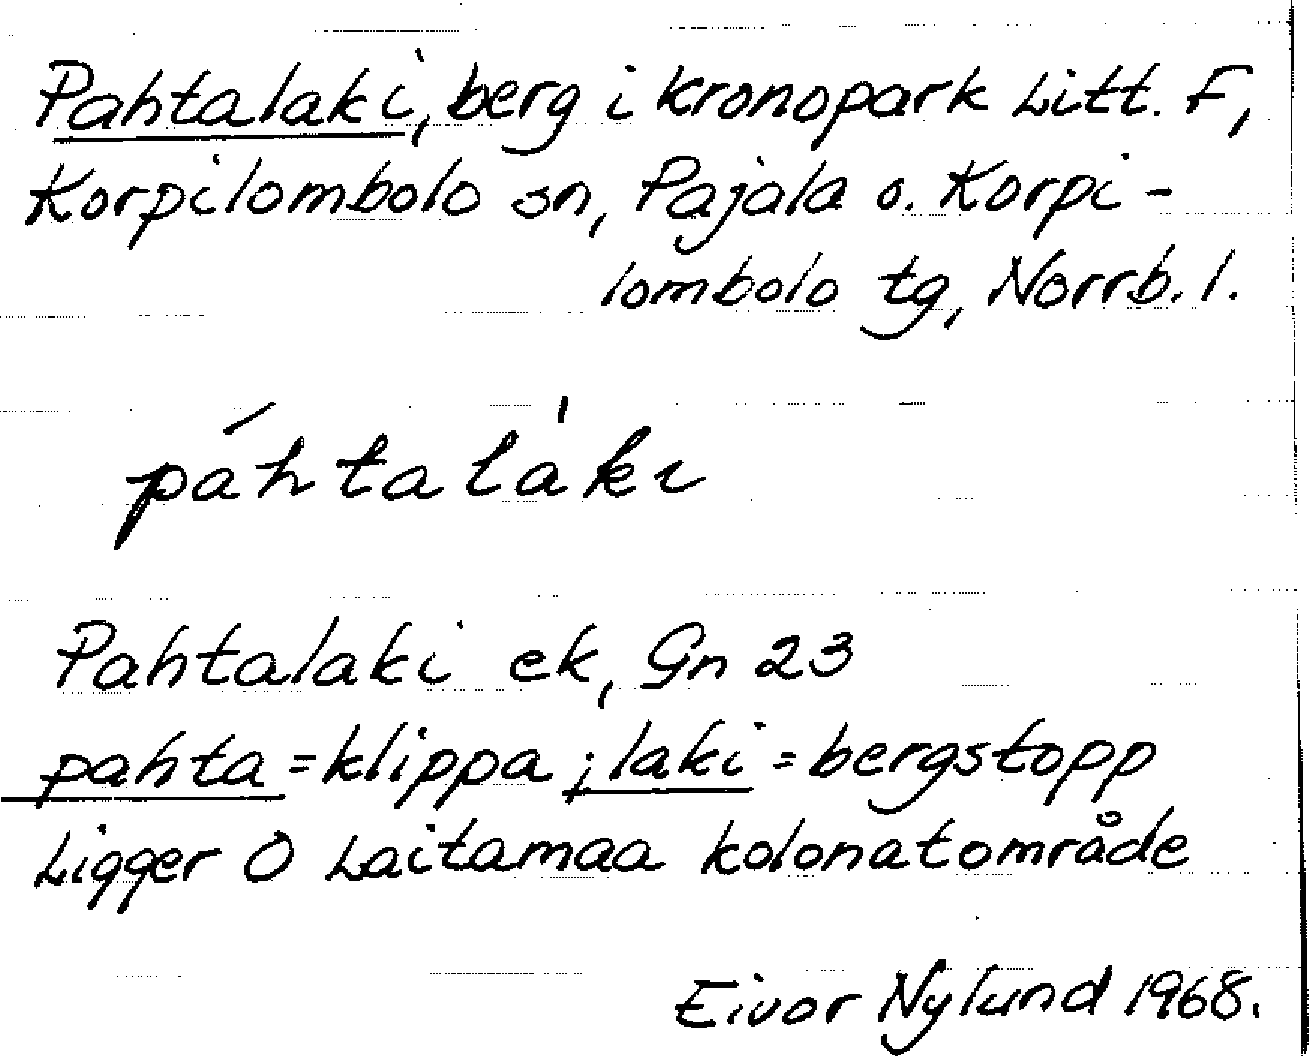 Pahtalaki, berg i kronopark Litt. F,
Korpilombolo sn, Pajala o. Korpi-
lombolo tg, Norrb. l.
páhtalàkı
Pahtalaki ek, Gn 23
pahta = klippa ; laki = bergstopp
Ligger O Laitamaa kolonatområde
Eivor Nylund 1968.